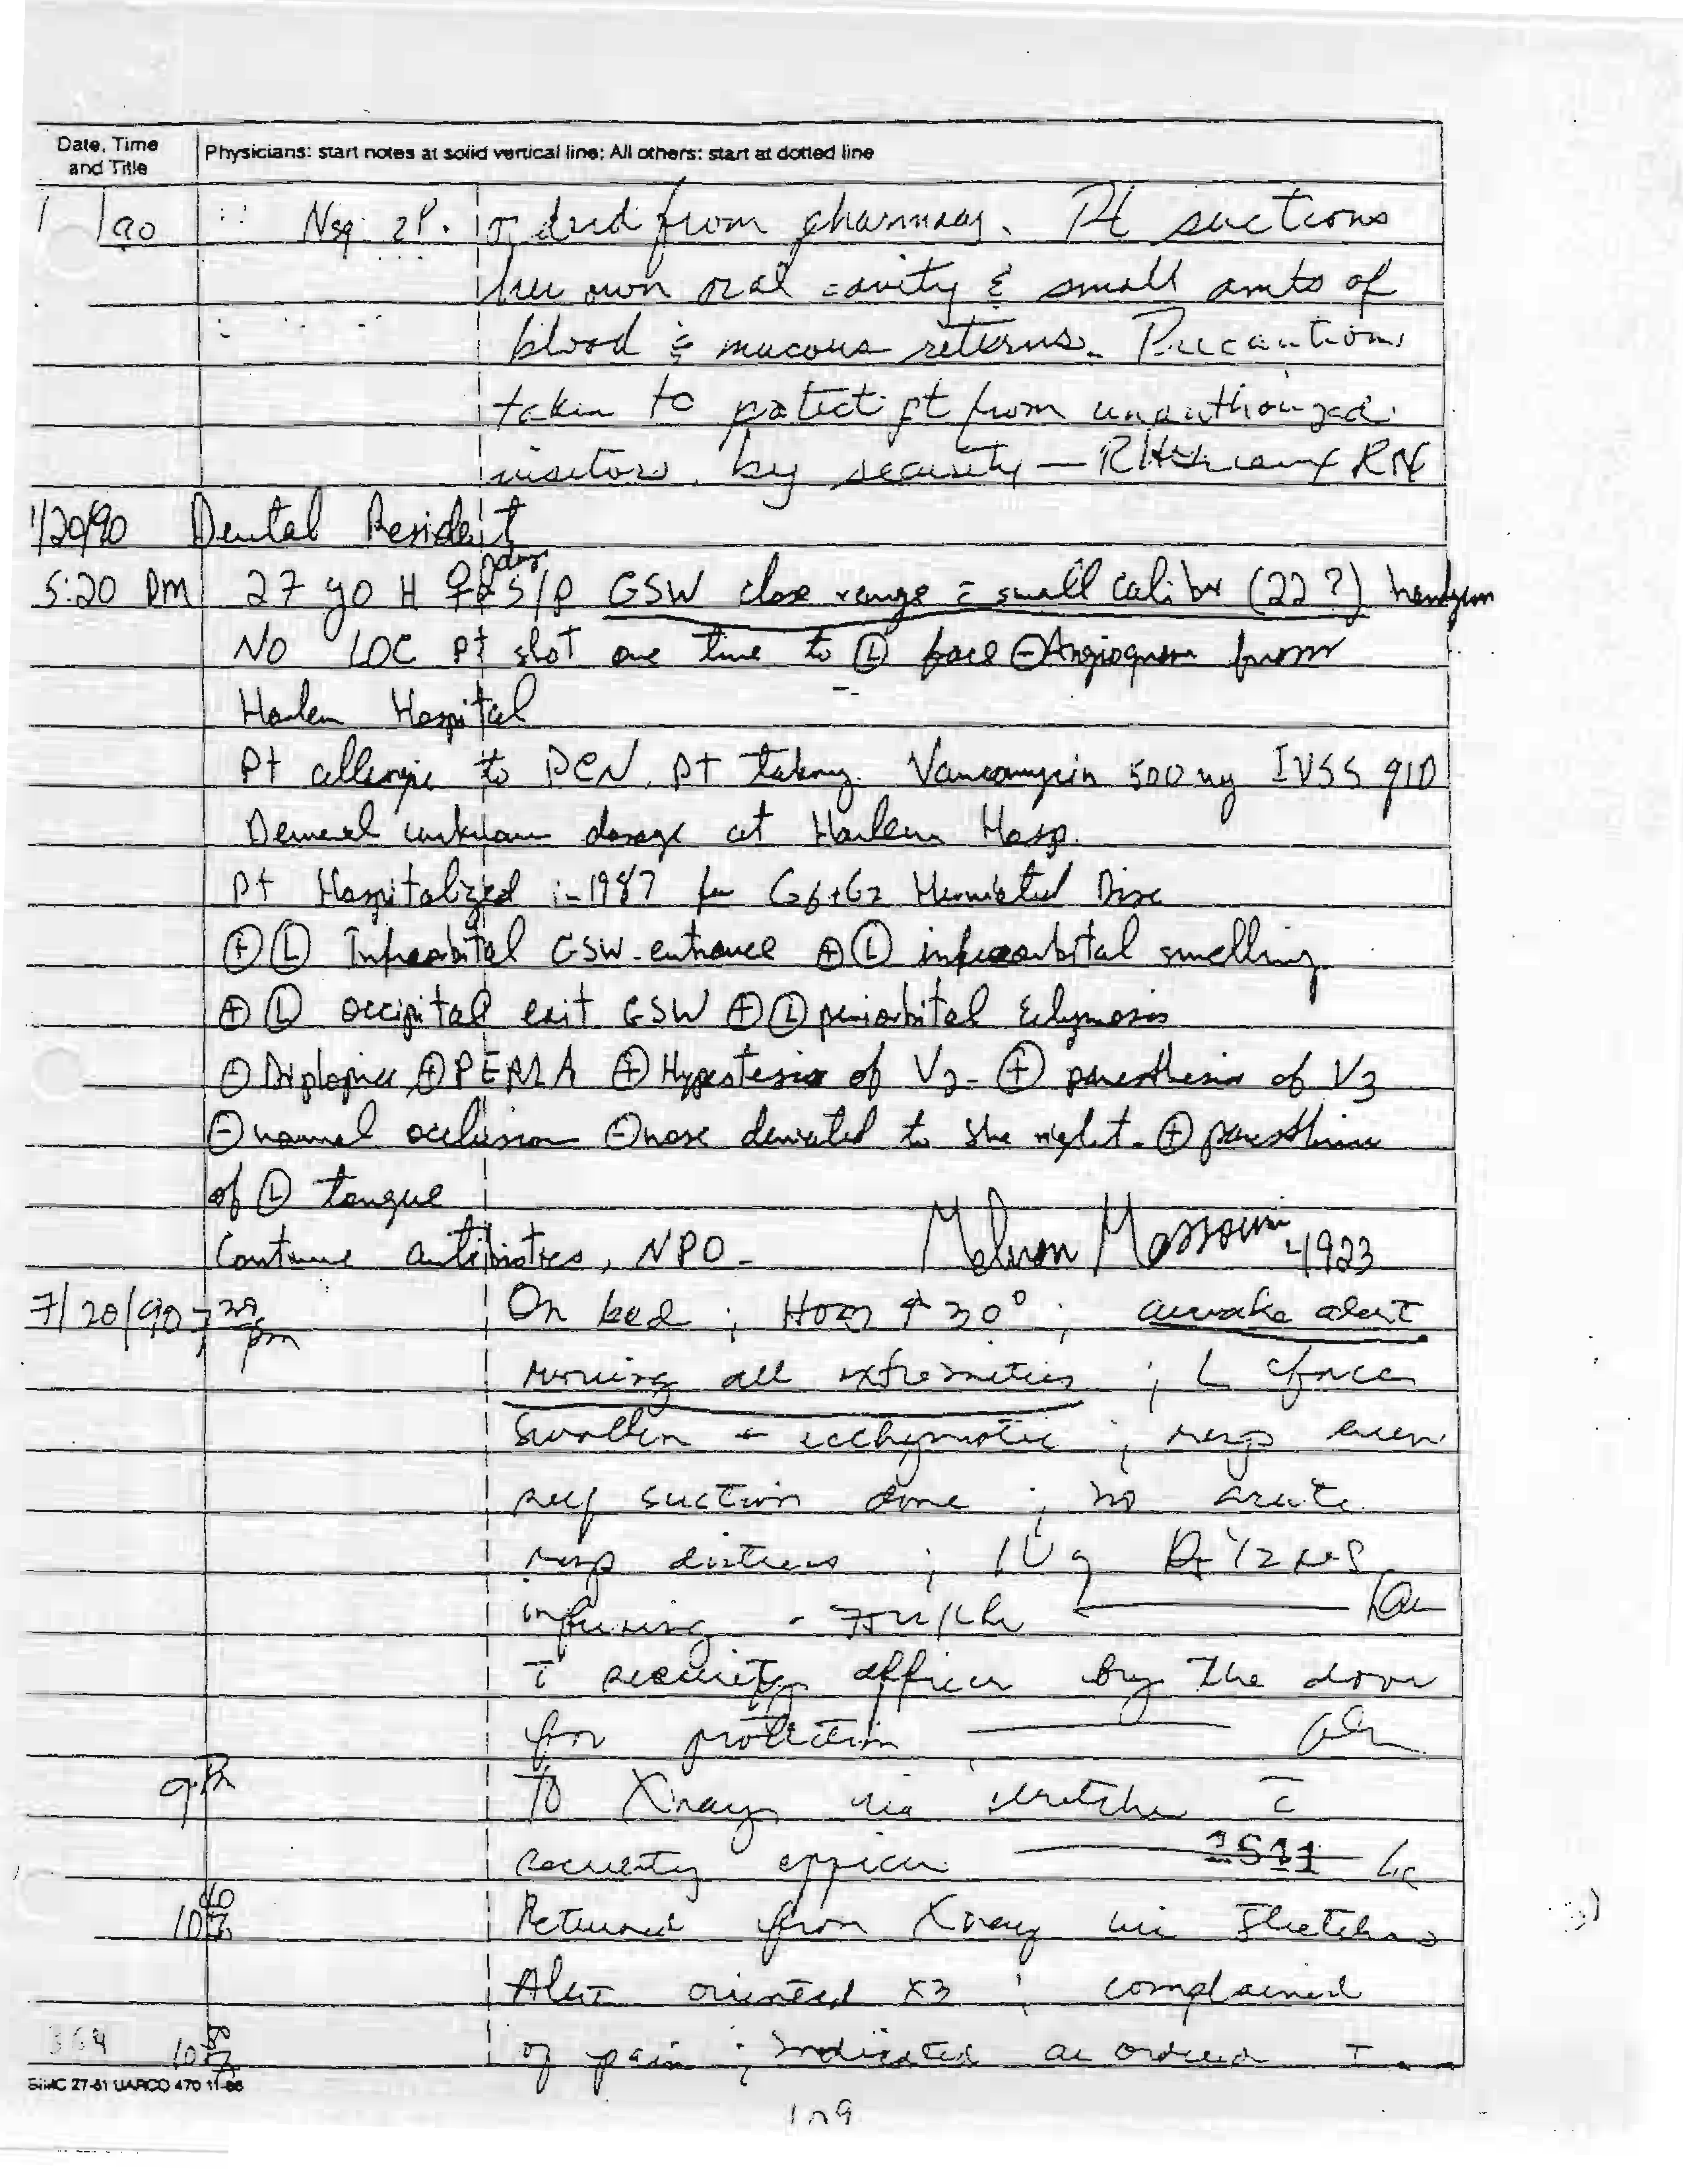 Date, Time
and Title
Physicians: start notes at solid vertical line; All others: start at dotted line
90 Nsg from pharmacy. Pt suctions
her own oral cavity c̄ small amts of
blood c̄ mucous returns. Precautions
taken to protect pt from unauthorized
visitors by security — RN
1/20/90 Dental Resident
5:20 PM 27 yo H ♀ 2 days S/P GSW close range c̄ small caliber (22?) handgun
NO LOC pt shot one time to Ⓛ face ⊖ Angiogram from
Harlem Hospital
Pt allergic to PCN. pt taking Vancomycin 500 mg IVSS QID
Demerol unknown dosage at Harlem Hosp.
Pt Hospitalized in 1987 for Herniated Disc
⊕ Ⓛ Infraorbital GSW entrance ⊕ Ⓛ infraorbital swelling
⊕ Ⓛ occipital exit GSW ⊕ Ⓛ periorbital
⊖ Diplopia, ⊕ PERLA ⊕ of V2 - ⊕ paresthesia of V3
⊖ occlusion ⊖ nose deviated to the right. ⊕
of Ⓛ tongue
Continue antibiotics, NPO - 4923
7/20/90 7 30 pm On bed ; HOB ↑ 30° ; awake alert
moving all extremities ; L face
swollen + ecchymotic ; resp even
self suction done ; no acute
resp distress ; IV of D5 1/2 NS
infusing
c̄ security officer by the door
for protection
9 Pm To Xray via stretcher c̄
security officer 1511
10 40 Returned from Xray via stretcher
Alert oriented x3 ; complained
10 50 of pain ; medicated as ordered
364
BIMC 27-61 UARCO 470 11-86
109